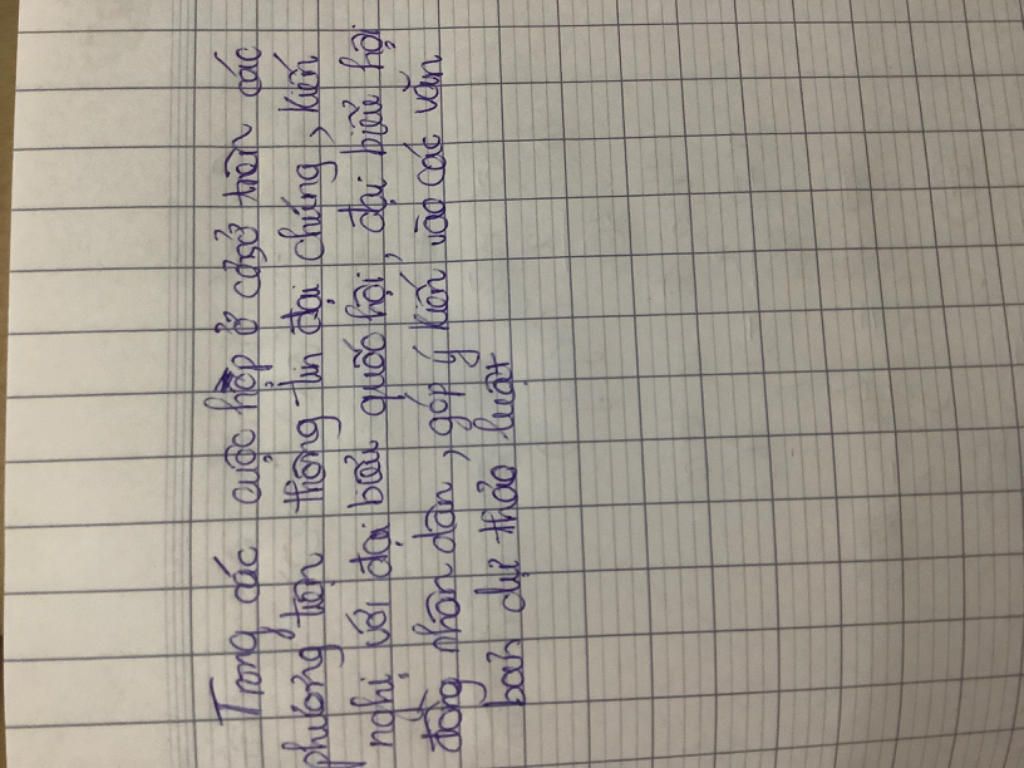 Trong các cuộc họp ở cơ sở trên các
phương tiện thông tin đại chúng, kiến
nghị với đại biểu quốc hội, đại biểu hội
đồng nhân dân, góp ý kiến vào các văn
bản dự thảo luật